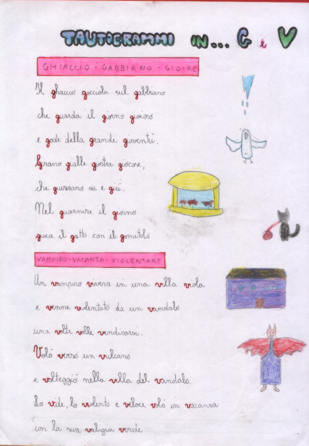 TAUTOGRAMMI IN... G e V
GHIACCIO - GABBIANO - GIOIRE
Il ghiaccio gocciola sul gabbiano
che guarda il giorno gioioso
e gode della grande gioventù.
Grano giallo giostra giocose,
che guizzano su e giù.
Nel guarnire il giorno
gioca il gatto con il gomitolo
VAMPIRO-VACANZA-VIOLENTARE
Un vampiro viveva in una villa viola
e venne violentato da un vandalo
una volta volle vendicarsi.
Volò verso un vulcano
e volteggiò nella villa del vandalo.
Lo vide, lo violentò e veloce volò in vacanza
con la sua valigia verde